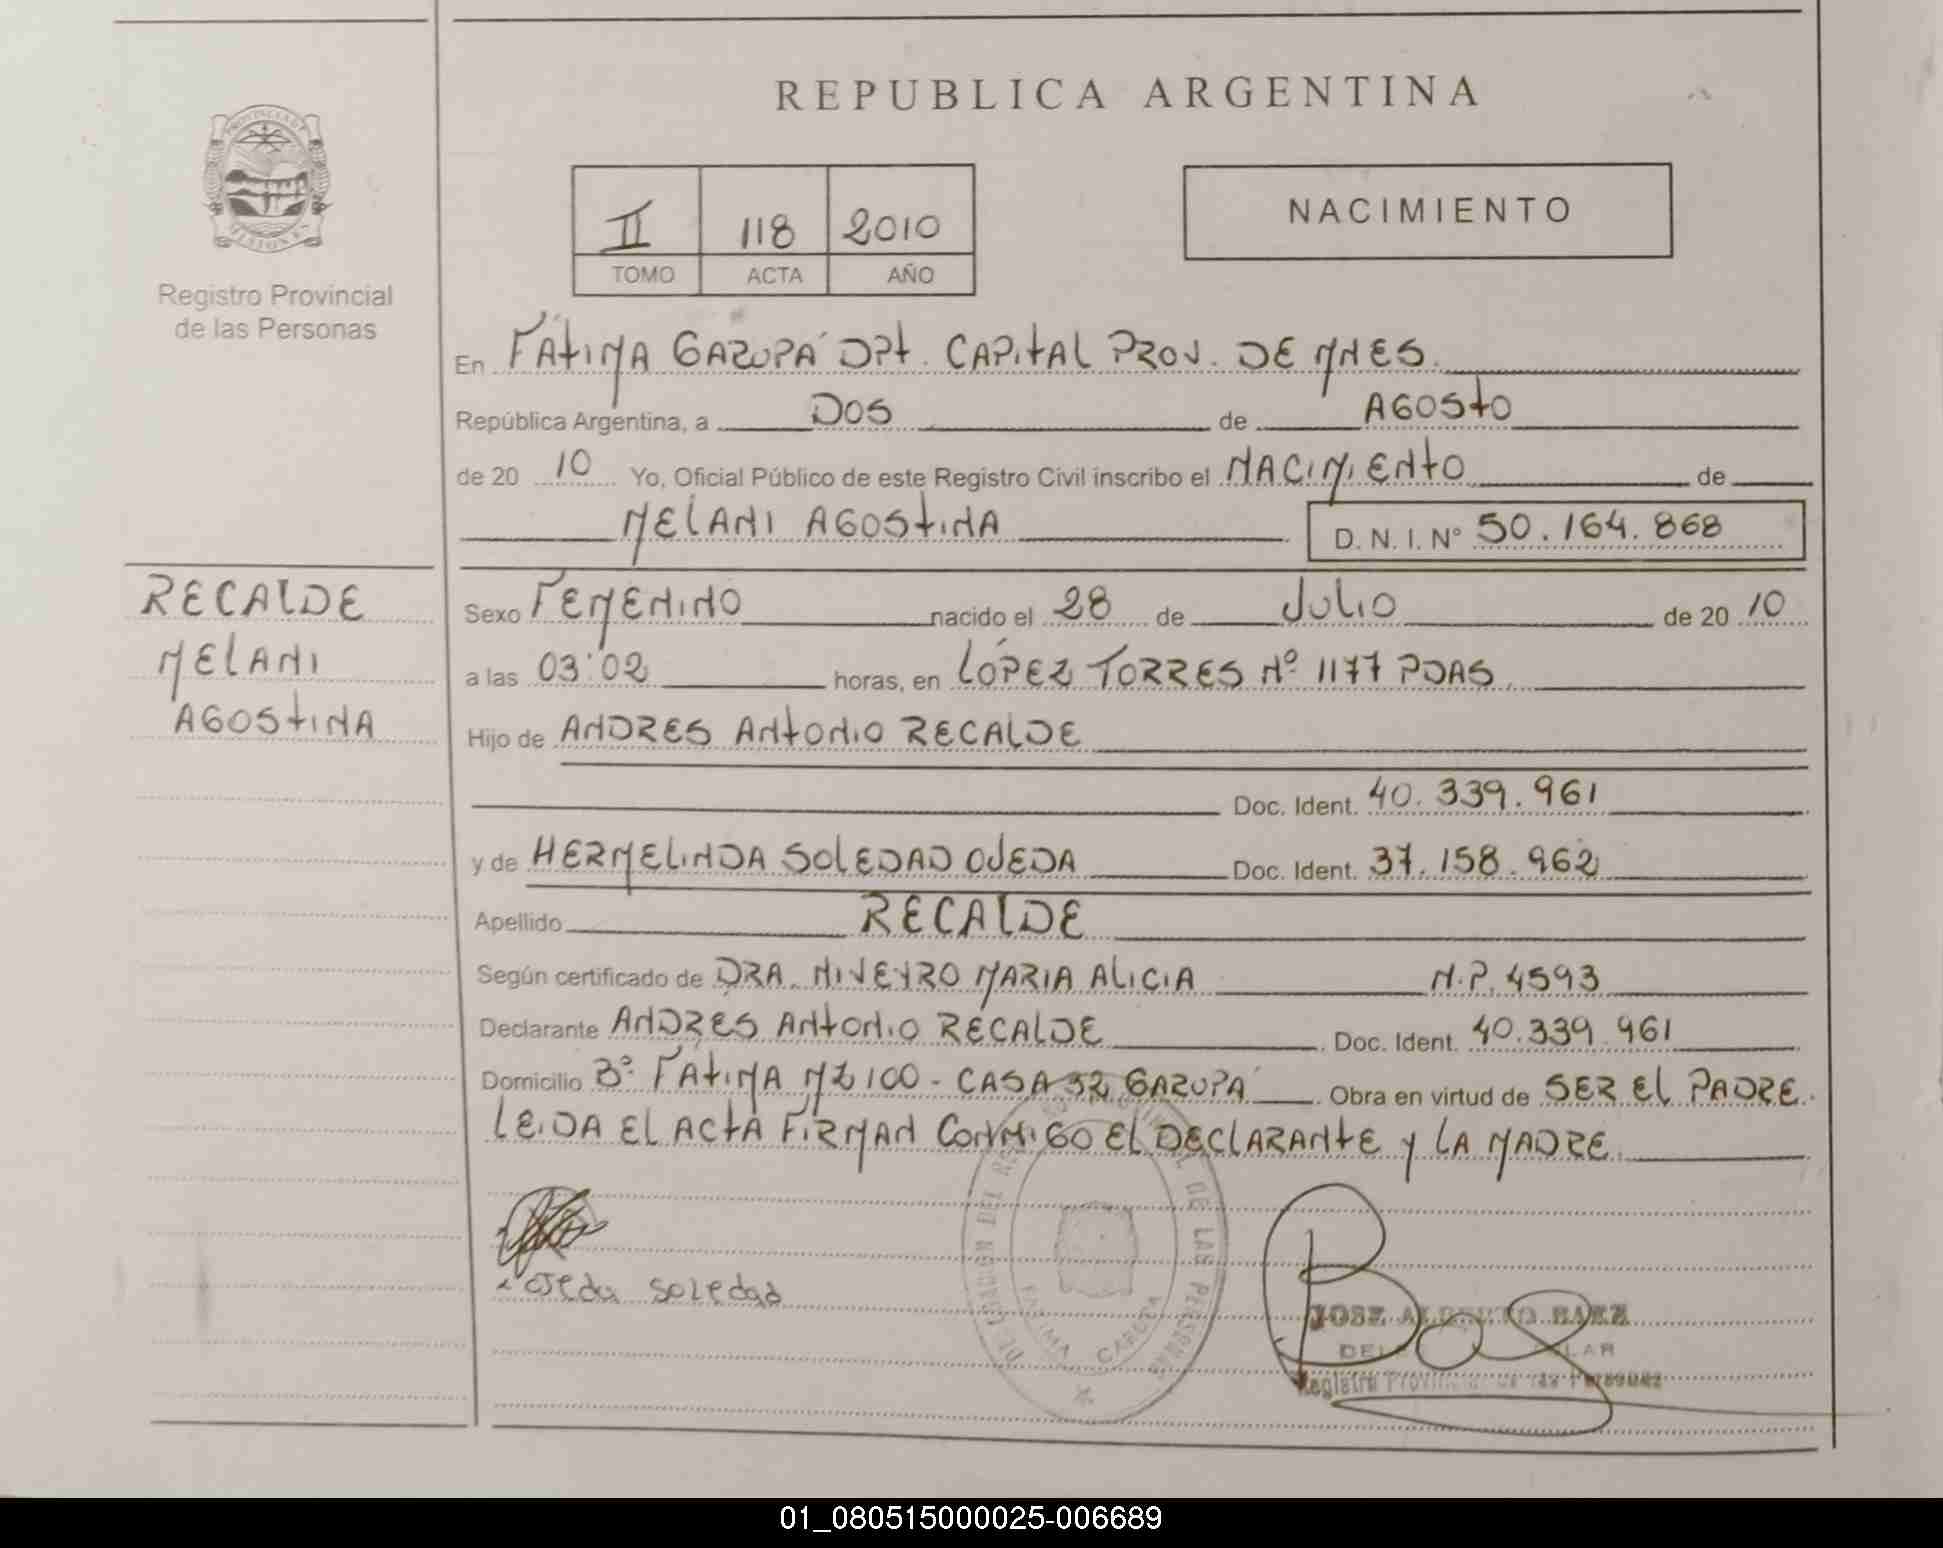 REPUBLICA ARGENTINA
PROVINCIA DE
MISIONES
Registro Provincial
de las Personas
II 118 2010
TOMO ACTA AÑO
NACIMIENTO
En FÁTIMA GARUPÁ DPt. CAPITAL PROV. DE MNES.
República Argentina, a DOS de AGOSTO
de 20 10 Yo, Oficial Público de este Registro Civil inscribo el NACIMIENTO de
MELANI AGOSTINA D. N. I. Nº 50.164.868
RECALDE
MELANI
AGOSTINA
Sexo FEMENINO nacido el 28 de JULIO de 20 10
a las 03:02 horas, en LÓPEZ TORRES Nº 1177 PDAS
Hijo de ANDRES ANTONIO RECALDE
Doc. Ident. 40.339.961
y de HERMELINDA SOLEDAD OJEDA Doc. Ident. 37.158.962
Apellido RECALDE
Según certificado de DRA. NIVEYRO MARIA ALICIA M.P. 4593
Declarante ANDRES ANTONIO RECALDE Doc. Ident. 40.339.961
Domicilio Bº FÁTIMA MZ 100 - CASA 32 GARUPÁ Obra en virtud de SER EL PADRE.
LEIDA EL ACTA FIRMAN CONMIGO EL DECLARANTE Y LA MADRE.
ojeda soledad
JOSE ALBERTO BAEZ
Registro Provincial de las Personas
01_080515000025-006689